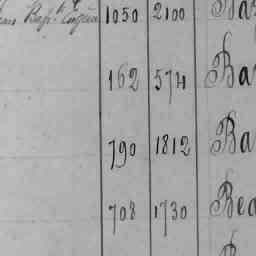 Bapt. 1050 2100 Bar
162 574 Bar
790 1812 Ba
708 1730 Bea